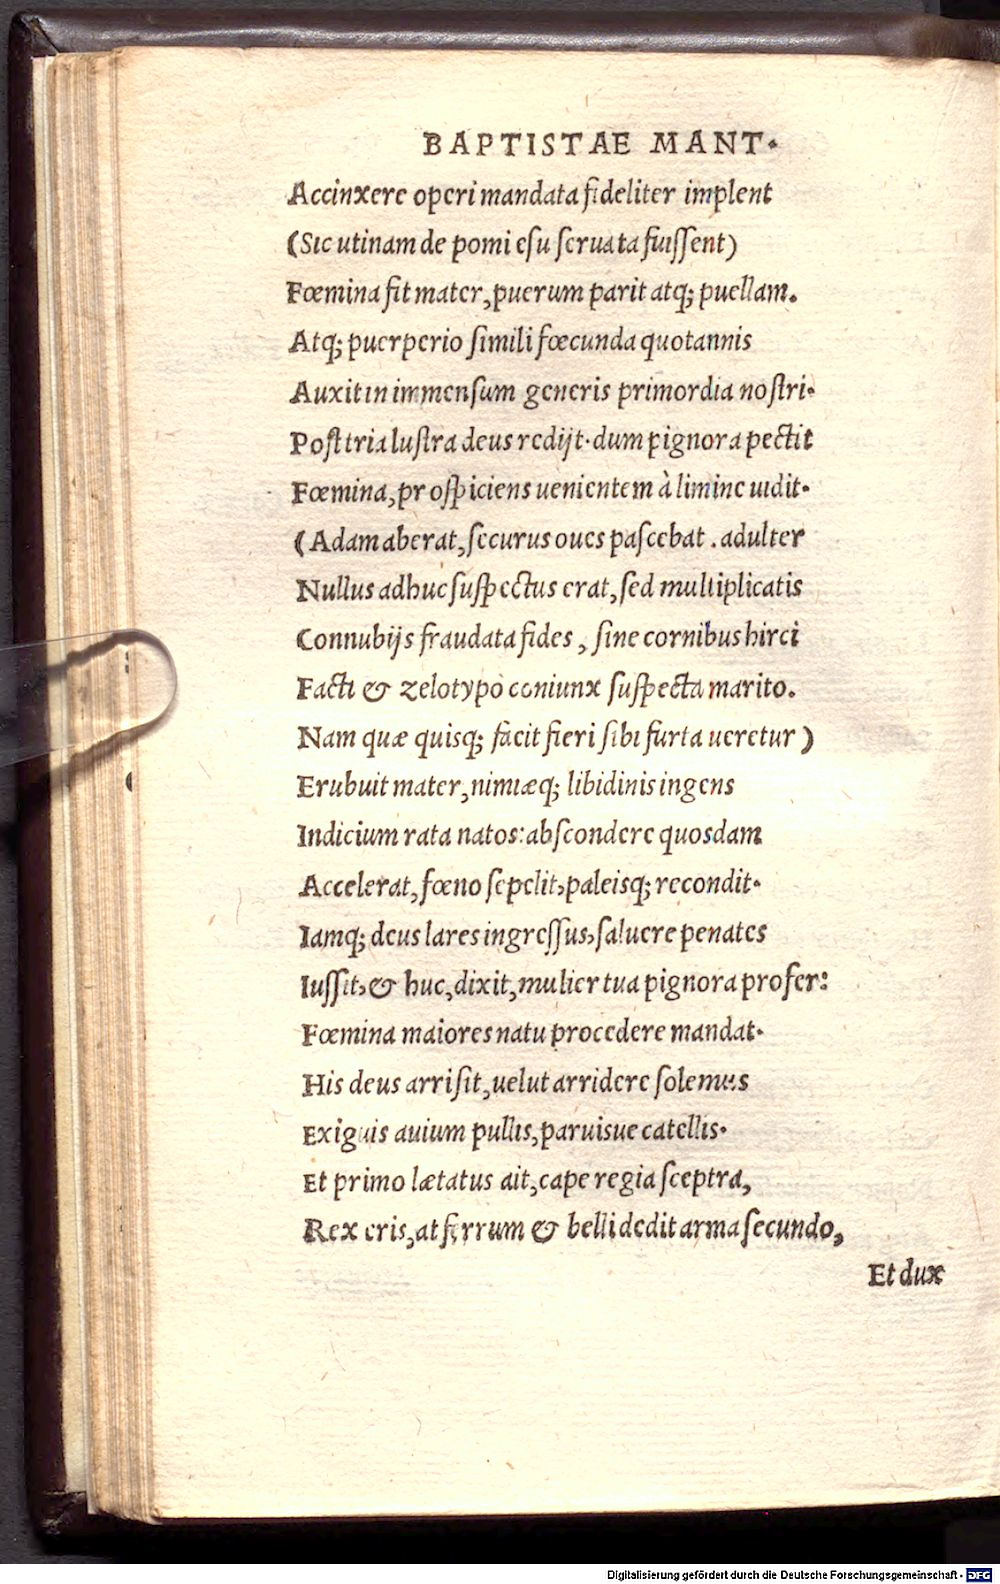 BAPTISTAE MANT.
Accinxere operi mandata fideliter implent
(Sic utinam de pomi esu seruata fuissent)
Fœmina fit mater, puerum parit atq; puellam.
Atq; puerperio simili fœcunda quotannis
Auxit in immensum generis primordia nostri.
Post tria lustra deus redijt. dum pignora pectit
Fœmina, prospiciens uenientem à limine uidit.
(Adam aberat, securus oues pascebat . adulter
Nullus adhuc suspectus erat, sed multiplicatis
Connubijs fraudata fides , sine cornibus hirci
Facti & zelotypo coniunx suspecta marito.
Nam quæ quisq; facit fieri sibi furta ueretur )
Erubuit mater, nimiæq; libidinis ingens
Indicium rata natos: abscondere quosdam
Accelerat, fœno sepelit, paleisq; recondit.
Iamq; deus lares ingressus, saluere penates
Iussit, & huc, dixit, mulier tua pignora profer:
Fœmina maiores natu procedere mandat.
His deus arrisit, uelut arridere solemus
Exiguis auium pullis, paruisue catellis.
Et primo lætatus ait, cape regia sceptra,
Rex eris, at ferrum & belli dedit arma secundo,
Et dux
Digitalisierung gefördert durch die Deutsche Forschungsgemeinschaft - DFG